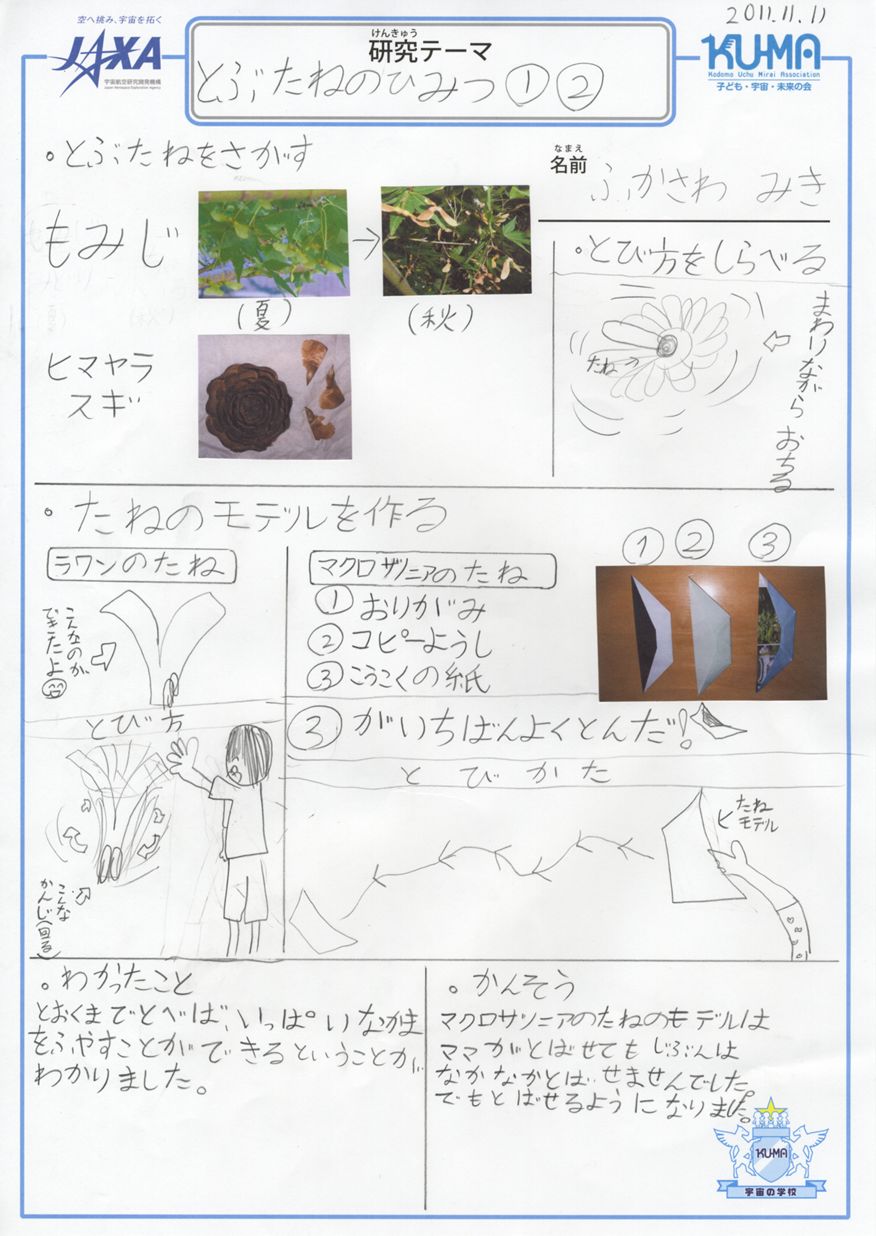 2011.11.11
空へ挑み、宇宙を拓く
JAXA
宇宙航空研究開発機構
Japan Aerospace Exploration Agency
けんきゅう
研究テーマ
とぶたねのひみつ①②
KU-MA
Kodomo Uchu Mirai Association
子ども・宇宙・未来の会
。とぶたねをさがす
なまえ
名前
ふかさわ みき
もみじ
→
(夏)
(秋)
ヒマヤラ
スギ
。とび方をしらべる
たね
まわりながら おちる
。たねのモデルを作る
ラワンのたね
こんなのが
できたよ
とび方
こんな
かんじ(回る)
マクロザミニアのたね
① おりがみ
② コピーようし
③ こうこくの紙
① ② ③
③がいちばんよくとんだ!
とびかた
たね
モデル
。わかったこと
とおくまでとべば、いっぱいなかま
をふやすことができるということが
わかりました。
。かんそう
マクロサンニアのたねのモデルは
ママがとばせても じぶんは
なかなかとばせませんでした
でもとばせるようになりました。
KU-MA
宇宙の学校